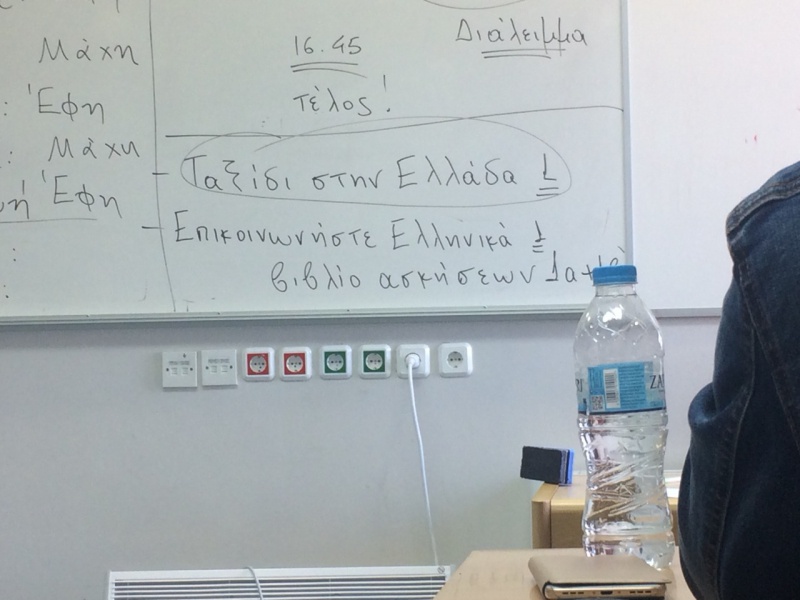 Μάχη
: Έφη
: Μάχη
Έφη
:
:
16.45
τέλος!
Διάλειμμα
- Ταξίδι στην Ελλάδα 1
- Επικοινωνήστε Ελληνικά 1
βιβλίο ασκήσεων 1α+
ZA